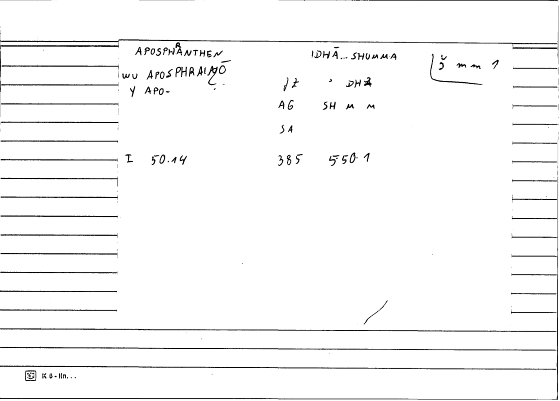 APOSPHRANTHEN IDHĀ... SHUMMA
WU APOSPHRAINŌ
Y APO- DH
AG SH M M
SA
I 50.14 385 550.1